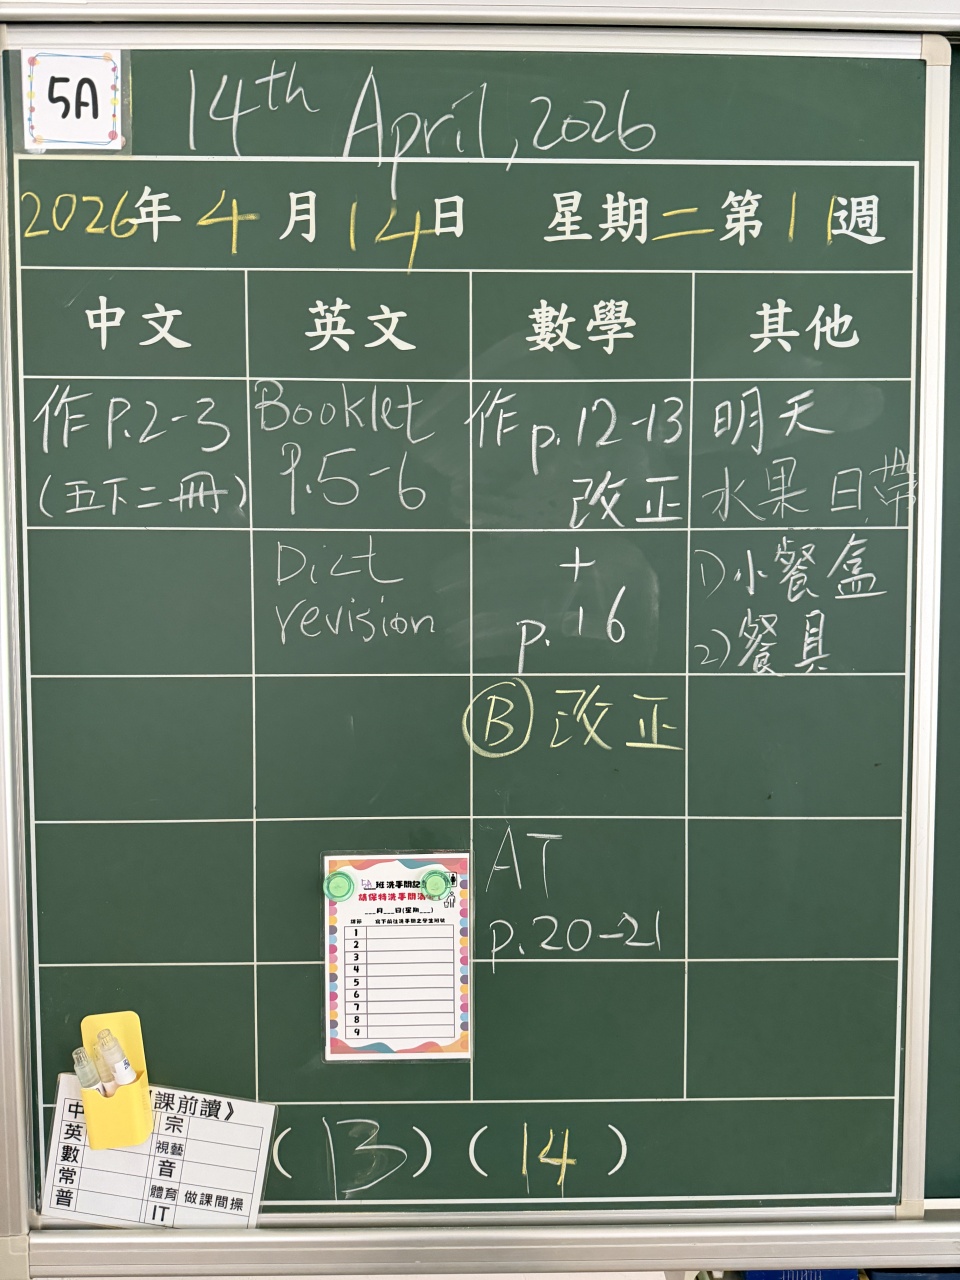 5A
14th April, 2026
2026年4月14日 星期二第11週
中文
英文
數學
其他
作P.2-3
(五下二冊)
Booklet
P.5-6
作p.12-13
改正
明天
水果日,帶
Dict
revision
+
p.16
1)小餐盒
2)餐具
Ⓑ改正
AT
p.20-21
5A班洗手間記
請保持洗手間清
___月___日(星期___)
課節 寫下前往洗手間之學生班號
1
2
3
4
5
6
7
8
9
課前讀》
中
宗
英
視藝
數
音
常
體育 做課間操
普
IT
(13)(14)